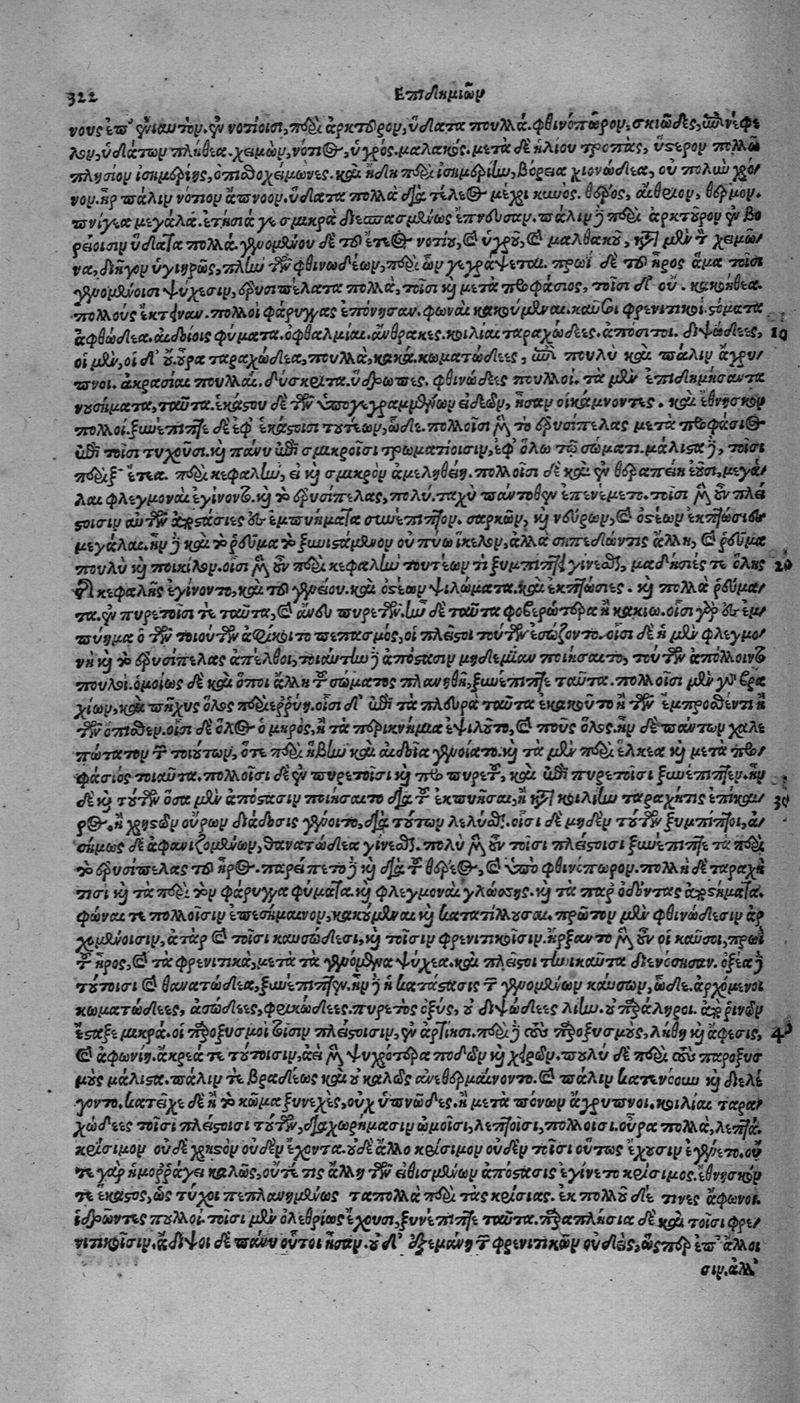 322 Επιδημιῶν
νους ἐπ' ἐνιαυτὸν. ἐν νοτίοισι, περὶ ἀρκτοῦρον, ὕδατα πουλλά. φθινόπωρον, σκιῶδες, ἐπινέφε
λον, ὑδάτων πλήθεα. χειμὼν, νότιος, ὑγρὸς. μαλακός. μετὰ δὲ ἡλίου τροπὰς, ὕστερον πολλῶ
πλησίον ἰσημερίης, ὀπισθοχείμωνες. καὶ ἤδη περὶ ἰσημερίην, βόρεια χιονώδεα, οὐ πολὺν χρό
νον. ἦρ πάλιν νότιον ἄπνοον. ὕδατα πολλὰ διὰ τέλεος μέχρι κυνός. θέρος, αἴθριον, θερμον.
πνίγεα μεγάλα. ἐτησίαι σμικρὰ διεσπασμένως ἔπνευσαν. πάλιν δὲ περὶ ἀρκτοῦρον ἐν βο
ρείοισιν ὕδατα πολλά. γενομένου δὲ τοῦ ἔτεος νοτίου, καὶ ὑγροῦ, καὶ μαλθακοῦ, κατὰ μὲν τὸν χειμῶ
να, διῆγον ὑγιηρῶς, πλὴν τῶν φθινωδέων, περὶ ὧν γεγράψεται. πρωῒ δὲ τοῦ ἦρος ἅμα τοῖσι
γενομένοισι ψύχεσιν, ἐρυσιπέλατα πολλὰ, τοῖσι καὶ μετὰ προφάσιος, τοῖσι δ' οὔ. κακοήθεα.
πολλοὺς ἔκτειναν. πολλοὶ φάρυγγας ἐπόνησαν. φωναὶ κακούμεναι. καῦσοι φρενιτικοί. στόματα
ἀφθώδεα. αἰδοίοις φύματα. ὀφθαλμίαι. ἄνθρακες. κοιλίαι ταραχώδεες. ἀπόσιτοι. διψώδεες, 10
οἱ μὲν, οἱ δ' οὔ. οὖρα ταραχώδεα, πουλλὰ, κακά. κωματώδεες, ἐπὶ πουλὺ καὶ πάλιν ἄγρυ
πνοι. ἀκρασίαι πουλλαί. δύσκριτα. ὕδρωπες. φθινώδεες πουλλοί. τὰ μὲν ἐπιδημήσαντα
νουσήματα, ταῦτα. ἑκάστου δὲ τῶν ὑπογεγραμμένων εἰδέων, ἦσαν οἱ κάμνοντες. καὶ ἔθνησκον
πολλοί. ξυνέπιπτε δὲ ἐφ' ἑκάστοισι τουτέων, ὧδε. πολλοῖσι μὲν τὸ ἐρυσίπελας μετὰ προφάσιος
ἐπὶ τοῖσι τυχοῦσι. καὶ πάνυ ἐπὶ σμικροῖσι τρωματίοισιν, ἐφ' ὅλω τῷ σώματι. μάλιστα δὲ, τοῖσι
περὶ ξ' ἔτεα. περὶ κεφαλὴν, εἰ καὶ σμικρὸν ἀμεληθείη. πολλοῖσι δὲ καὶ ἐν θεραπείῃ ἐοῦσι, μεγά
λαι φλεγμοναὶ ἐγίνοντο. καὶ τὸ ἐρυσίπελας, πολὺ. ταχὺ πάντοθεν ἐπενέμετο. τοῖσι μὲν οὖν πλεί
στοισιν αὐτῶν ἀποστάσιες ἐς ἐμπυήματα συνέπιπτον. σαρκῶν, καὶ νεύρων, καὶ ὀστέων ἐκπτώσιες
μεγάλαι. ἦν δὲ καὶ τὸ ῥεῦμα τὸ ξυνιστάμενον οὐ πύω ἴκελον, ἀλλὰ σηπεδών τις ἄλλη, καὶ ῥεῦμα
πουλὺ καὶ ποικίλον. οἷσι μὲν οὖν περὶ κεφαλὴν τουτέων τι ξυμπίπτει γίνεσθαι, μαδήσιές τε ὅλης 20
τῆς κεφαλῆς ἐγίνοντο, καὶ τοῦ γενείου. καὶ ὀστέων ψιλώματα. καὶ ἐκπτώσιες. καὶ πολλὰ ῥεύμα
τα. ἐν πυρετοῖσί τε ταῦτα, καὶ ἄνευ πυρετῶν. ἦν δὲ ταῦτα φοβερώτερα ἢ κακίω. οἷσι γὰρ ἐς ἐμ
πύημα ὁ τῶν τοιούτων ἀφίκοιτο πεπασμὸς, οἱ πλεῖστοι τούτων ἐσώζοντο. οἷσι δὲ ἡ μὲν φλεγμο
νὴ καὶ τὸ ἐρυσίπελας ἀπέλθοι, τοιαύτην δὲ ἀπόστασιν μηδεμίαν ποιήσαιτο, τούτων ἀπόλλοιντο
πουλοί. ὁμοίως δὲ καὶ ὅποι ἄλλη τοῦ σώματος πλανηθῇ, ξυνέπιπτε ταῦτα. πολλοῖσι μὲν γὰρ βρα
χίων, καὶ πῆχυς ὅλος περιερρύη. οἷσι δ' ἐπὶ τὰ πλευρὰ ταῦτα ἐκακοῦτο ἢ τῶν ἔμπροσθέν τι ἢ
τῶν ὄπισθεν. οἷσι δὲ ὅλος ὁ μηρὸς, ἢ τὰ περικνήμια ἐψιλοῦτο, καὶ ποὺς ὅλος. ἦν δὲ πάντων χαλε
πώτατον τῶν τοιούτων, ὅτε περὶ ἥβην καὶ αἰδοῖα γενοίατο. καὶ τὰ μὲν περὶ ἕλκεα καὶ μετὰ προ
φάσιος τοιαῦτα. πολλοῖσι δὲ ἐν πυρετοῖσι καὶ πρὸ πυρετοῦ, καὶ ἐπὶ πυρετοῖσι ξυνέπιπτεν. ἦν
δὲ καὶ τούτων ὅσα μὲν ἀπόστασιν ποιήσαιτο διὰ τοῦ ἐκπυῆσαι, ἢ κατὰ κοιλίην ταραχή τις ἐπίκαι 30
ρος, ἢ χρηστῶν οὔρων διάδοσις γένοιτο, διὰ τούτων λελύσθαι. οἷσι δὲ μηδὲν τούτων ξυμπίπτοι, ἀ
σήμως δὲ ἀφανιζομένων, θανατώδεα γίνεσθαι. πολὺ μὲν οὖν τοῖσι πλείστοισι ξυνέπιπτε τὰ περὶ
τὸ ἐρυσίπελας τοῦ ἦρος. παρείπετο δὲ καὶ διὰ τοῦ θέρεος, καὶ ὑπὸ φθινόπωρον. πολλὴ δὲ ταραχή
τισι καὶ τὰ περὶ τὸν φάρυγγα φύματα. καὶ φλεγμοναὶ γλώσσης. καὶ τὰ παρ' ὀδόντας ἀποστήματα.
φωναί τε πολλοῖσιν ἐπεσήμαινον, κακούμεναι καὶ κατατίλλουσαι. πρῶτον μὲν φθινώδεσιν ἀρ
χομένοισιν, ἀτὰρ καὶ τοῖσι καυσώδεσι, καὶ τοῖσιν φρενιτικοῖσιν. ἤρξαντο μὲν οὖν οἱ καῦσοι, πρωῒ
τοῦ ἦρος, καὶ τὰ φρενιτικὰ, μετὰ τὰ γενόμενα ψύχεα. καὶ πλεῖστοι τηνικαῦτα διενόσησαν. ὀξέα δὲ
τούτοισι καὶ θανατώδεα, ξυνέπιπτεν. ἦν δὲ ἡ κατάστασις τῶν γενομένων καύσων, ὧδε. ἀρχόμενοι
κωματώδεες, ἀσώδεες, φρικώδεες. πυρετὸς ὀξὺς, οὐ διψώδεες λίην. οὐ παράληροι. ἀπὸ ῥινῶν
ἔσταξε μικρά. οἱ παροξυσμοὶ τοῖσιν πλείστοισιν, ἐν ἀρτίῃσι. περὶ δὲ τοὺς παροξυσμοὺς, λήθη καὶ ἄφεσις, 40
καὶ ἀφωνίη. ἄκρεά τε τούτοισιν, ἀεὶ μὲν ψυχρότερα ποδῶν καὶ χειρῶν. πουλὺ δὲ περὶ τοὺς παροξυσ
μοὺς μάλιστα. πάλιν τε βραδέως καὶ οὐ καλῶς ἀνεθερμαίνοντο. καὶ πάλιν κατενόουν καὶ διελέ
γοντο. κατεῖχε δὲ ἢ τὸ κῶμα ξυνεχὲς, οὐχ ὑπνῶδες. ἢ μετὰ πόνων ἄγρυπνοι. κοιλίαι ταρα
χώδεες τοῖσι πλείστοισι τούτων, διαχωρήμασιν ὠμοῖσι, λεπτοῖσι, πολλοῖσι. οὖρα πολλὰ, λεπτά.
κρίσιμον οὐδὲ χρηστὸν οὐδὲν ἔχοντα. οὐδὲ ἄλλο κρίσιμον οὐδὲν τοῖσι οὕτως ἔχουσιν ἐγένετο. οὔ
τε γὰρ ἡμορράγει καλῶς, οὔτε τις ἄλλη τῶν εἰθισμένων ἀπόστασις ἐγίνετο κρίσιμος. ἔθνησκόν
τε ἕκαστος, ὡς τύχοι πεπλανημένως τὰ πολλὰ περὶ τὰς κρίσιας. ἐκ πολλοῦ δέ τινες ἄφωνοι.
ἱδρῶντες πολλοί. τοῖσι μὲν ὀλεθρίως ἔχουσι, ξυνέπιπτε ταῦτα. παραπλήσια δὲ καὶ τοῖσι φρε
νιτικοῖσιν. ἄδιψοι δὲ πάνυ οὗτοι ἦσαν. οὐδ' ἐξεμάνη τῶν φρενιτικῶν οὐδεὶς, ὥσπερ ἐπ' ἄλλοι
σιν. ἀλλ'